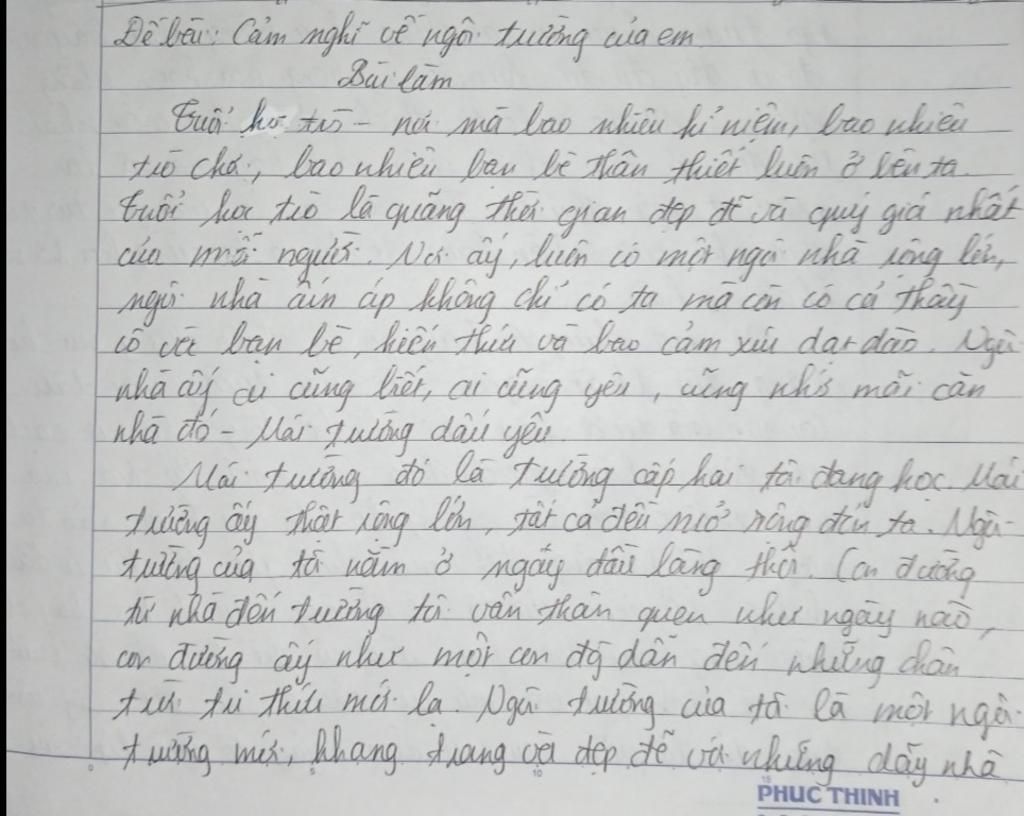 Đề bài: Cảm nghĩ về ngôi trường của em
Bài làm
Tuổi học trò - nơi mà bao nhiêu kỉ niệm, bao nhiêu
trò chơi, bao nhiêu bạn bè thân thiết luôn ở bên ta.
Tuổi học trò là quãng thời gian đẹp đẽ và quý giá nhất
của mỗi người. Nơi ấy, luôn có một ngôi nhà rộng lớn,
ngôi nhà ấm áp không chỉ có ta mà còn có cả thầy
cô và bạn bè, kiến thức và bao cảm xúc dạt dào. Ngôi
nhà ấy ai cũng biết, ai cũng yêu, cũng nhớ mãi căn
nhà đó - Mái trường dấu yêu.
Mái trường đó là trường cấp hai tôi đang học. Mái
trường ấy thật rộng lớn, tất cả đều mở rộng đón ta. Ngôi
trường của tôi nằm ở ngay đầu làng thôi. Con đường
từ nhà đến trường tôi vẫn thân quen như ngày nào,
con đường ấy như một con đò dẫn đến những chân
trời tri thức mới lạ. Ngôi trường của tôi là một ngôi
trường mới, khang trang và đẹp đẽ với những dãy nhà
PHUC THINH